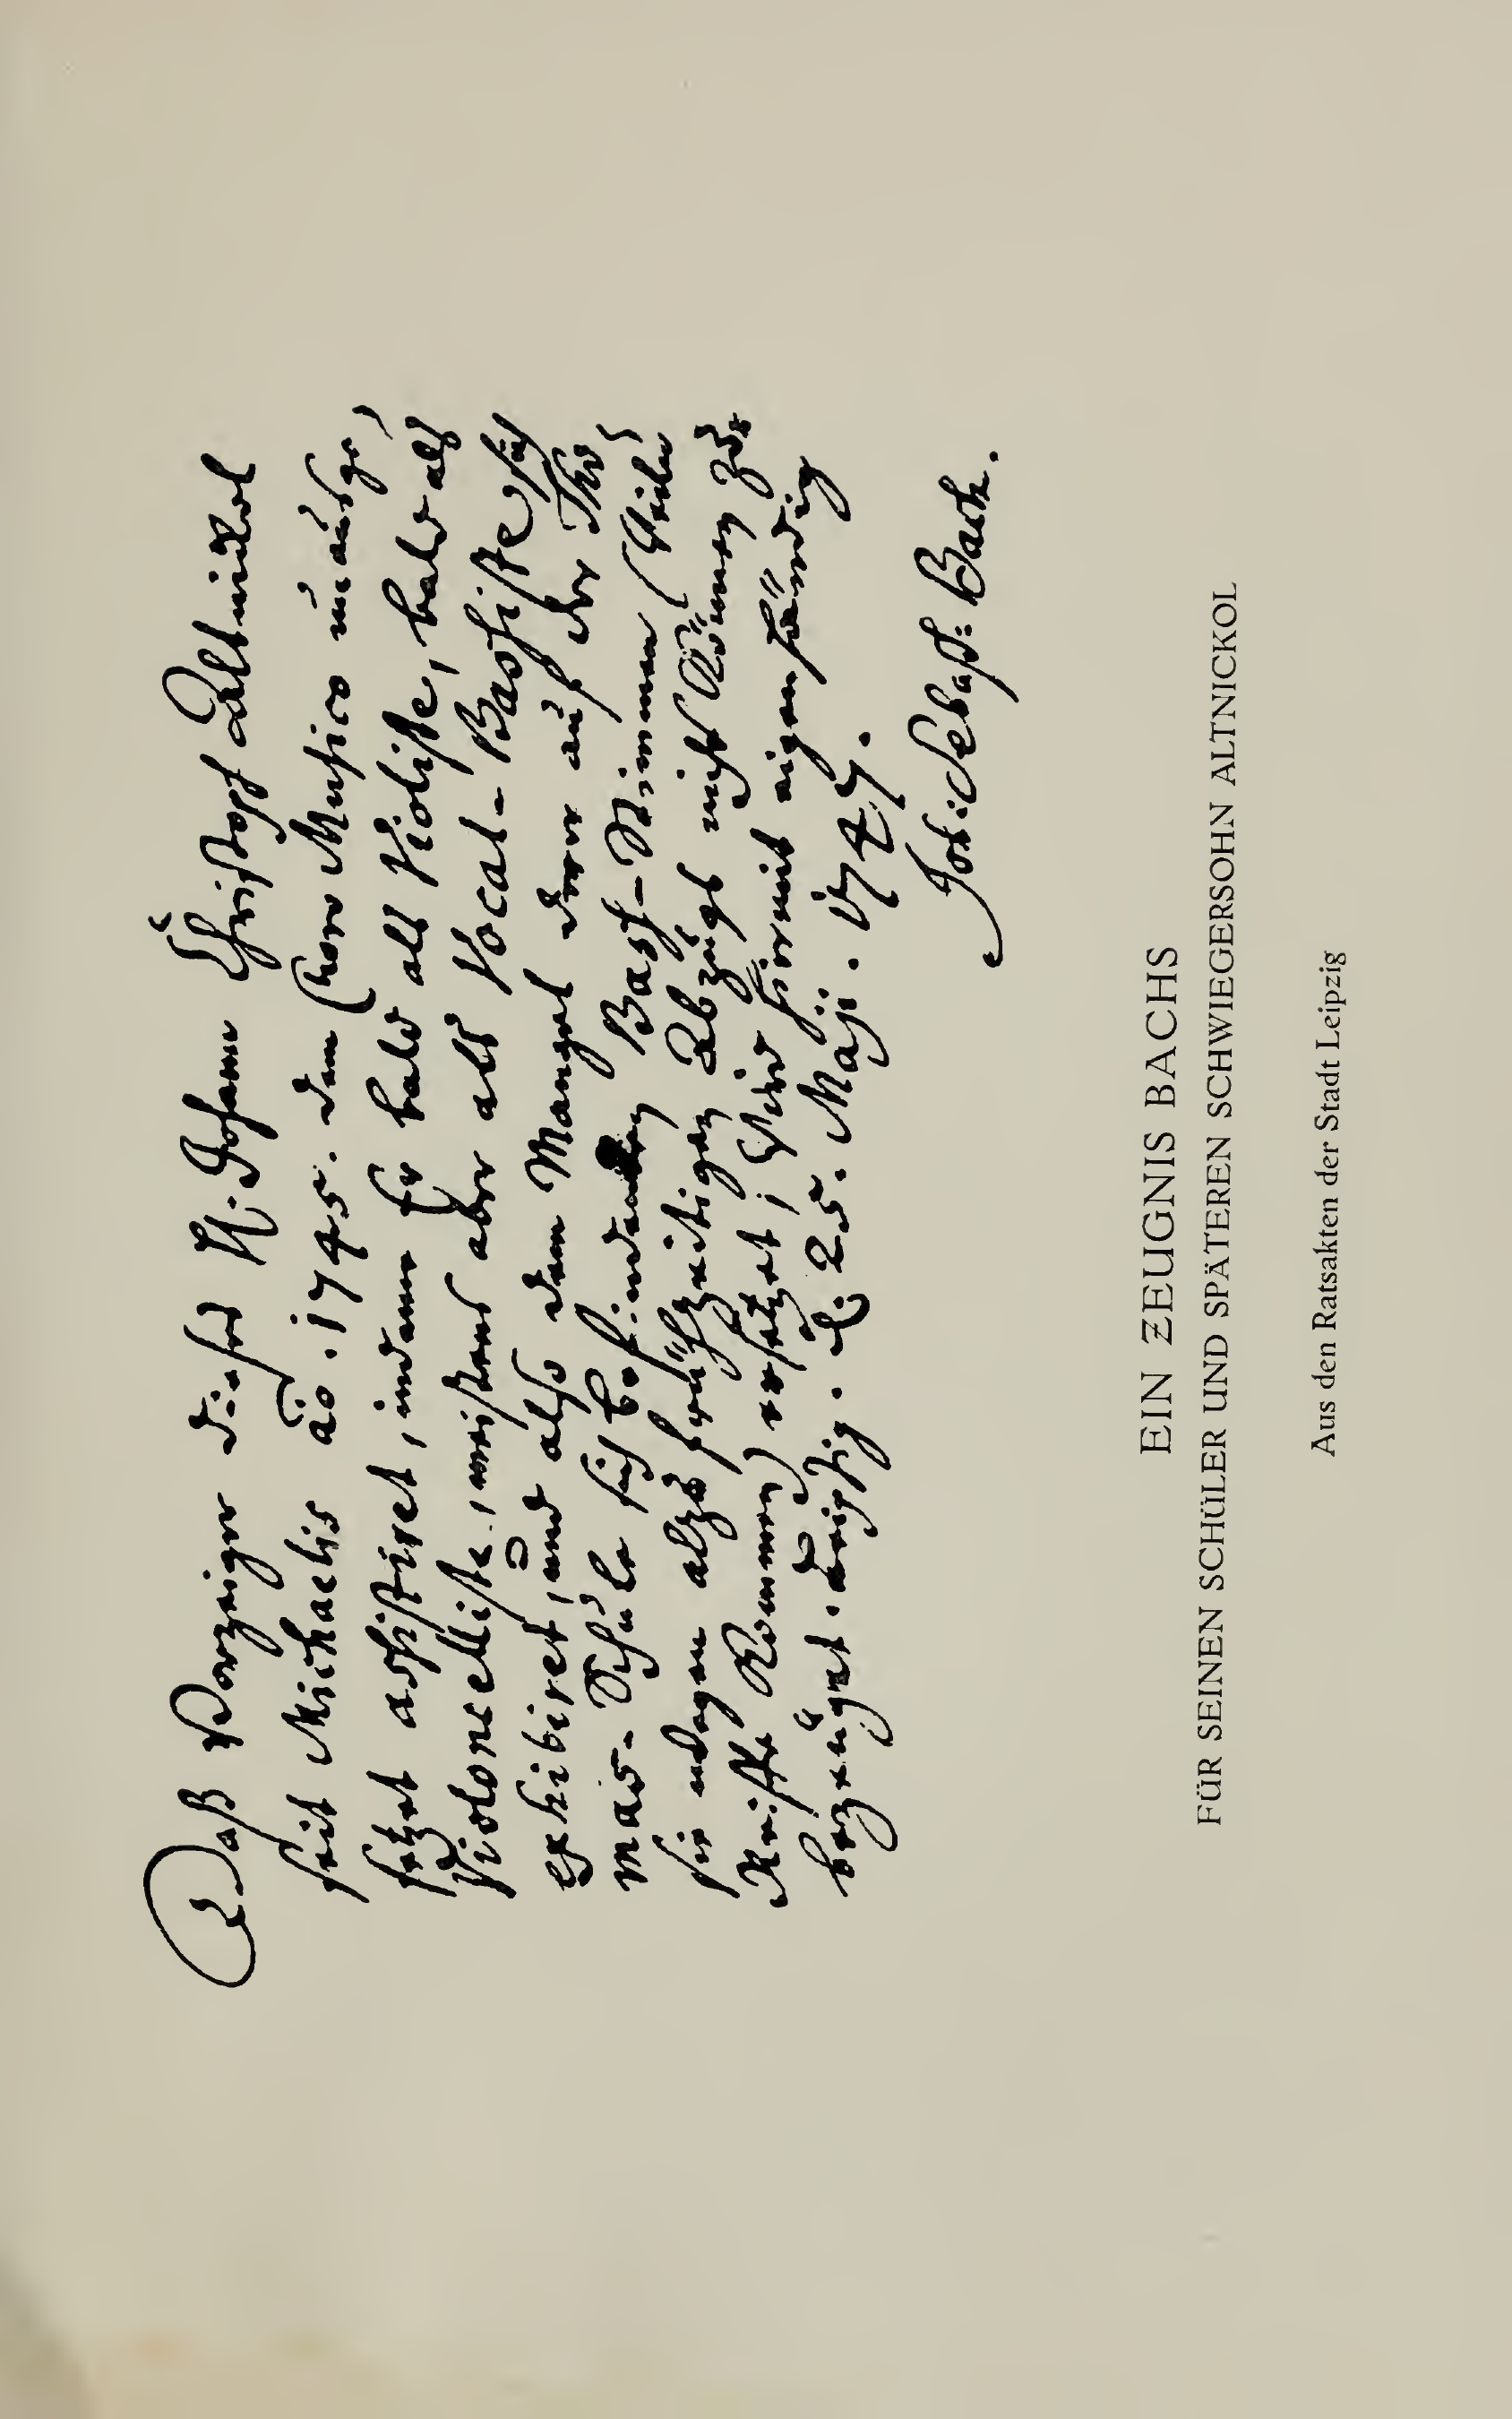 Daß Vorzeiger dieses H. Johann Christoph Altnickol
seit Michaelis ao. 1745. dem Choro Musico unausge-
setzet assistiret, indem Er bald als Violiste, bald als
Violoncelliste, meistens aber als Vocal-Bassiste sich
exhibiret, und also dem Mangel derer auf der Tho-
mas-Schule sich befindenden Bass-Stimmen (weiln
sie wegen alzu frühzeitigen Abzugs nicht können zur
Reiffe kommen) ersetzet; Wird hiermit eigenhändig
bezeüget. Leipzig. d. 25. Maji. 1747.
Joh: Sebast: Bach.
EIN ZEUGNIS BACHS
FÜR SEINEN SCHÜLER UND SPÄTEREN SCHWIEGERSOHN ALTNICKOL
Aus den Ratsakten der Stadt Leipzig